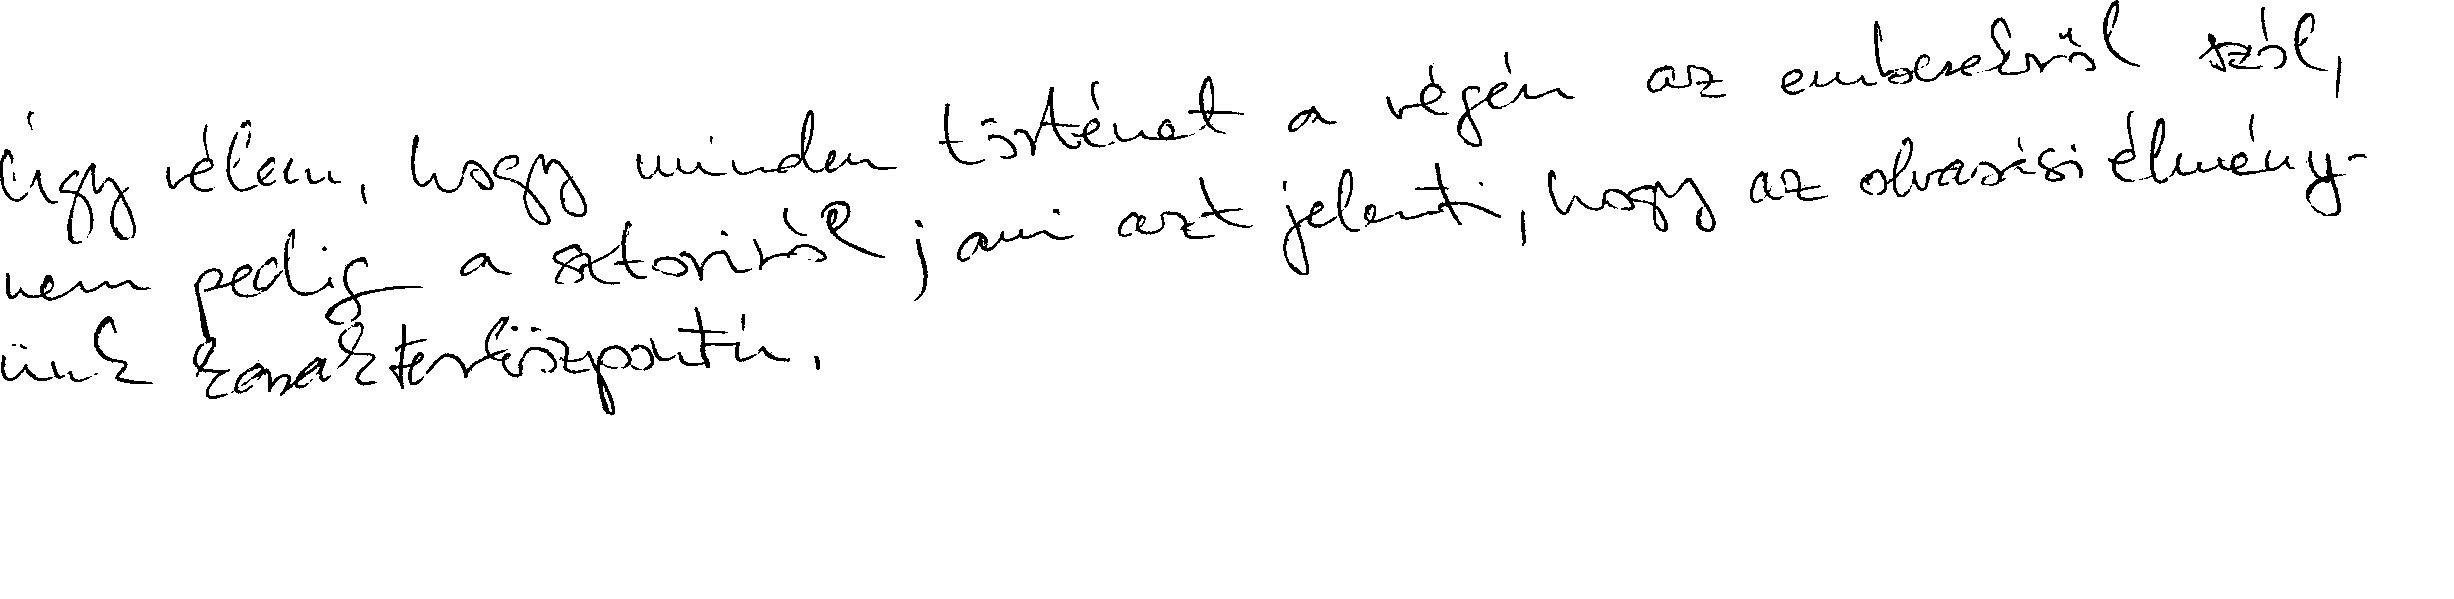 Úgy vélem, hogy minden történet a végén az emberekről szól,
nem pedig a sztoriról; ami azt jelenti, hogy az olvasási élmény-
ünk karakterközpontú.